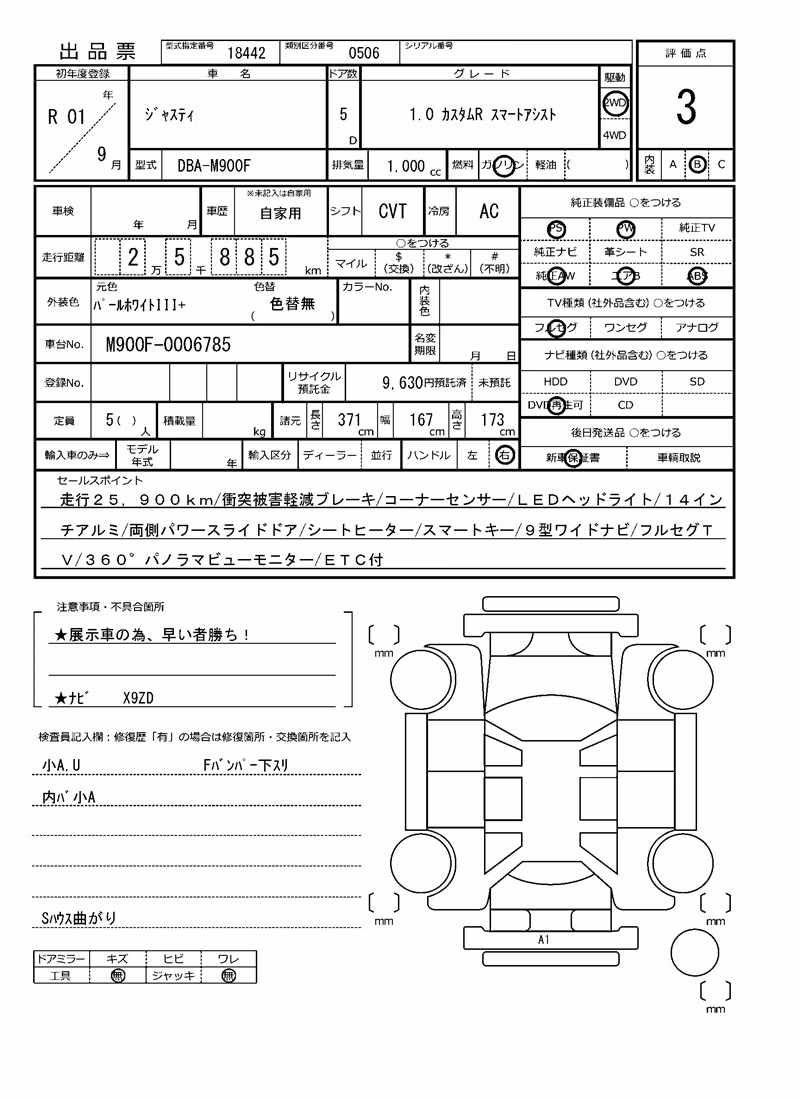 出品票
型式指定番号 18442 類別区分番号 0506 シリアル番号
評価点
3
内装 A B C
初年度登録 車名 ドア数 グレード 駆動
R 01 年 9 月
ジャスティ 5 D 1.0 カスタムR スマートアシスト 2WD 4WD
型式 DBA-M900F 排気量 1,000 cc 燃料 ガソリン 軽油 ( )
車検 年 月 車歴 ※未記入は自家用 自家用 シフト CVT 冷房 AC
走行距離 2 万 5 千 8 8 5 km
○をつける
マイル $(交換) *(改ざん) #(不明)
外装色 元色 パールホワイトIII+ 色替 ( 色替無 ) カラーNo. 内装色
車台No. M900F-0006785 名変期限 月 日
登録No. リサイクル預託金 9,630円預託済 未預託
定員 5( ) 人 積載量 kg 諸元 長さ 371 cm 幅 167 cm 高さ 173 cm
輸入車のみ⇒ モデル年式 年 輸入区分 ディーラー 並行 ハンドル 左 右
純正装備品 ○をつける
PS PW 純正TV
純正ナビ 革シート SR
純正AW エアB ABS
TV種類(社外品含む)○をつける
フルセグ ワンセグ アナログ
ナビ種類(社外品含む)○をつける
HDD DVD SD
DVD再生可 CD
後日発送品 ○をつける
新車保証書 車輌取説
セールスポイント
走行25,900km/衝突被害軽減ブレーキ/コーナーセンサー/LEDヘッドライト/14イン
チアルミ/両側パワースライドドア/シートヒーター/スマートキー/9型ワイドナビ/フルセグT
V/360°パノラマビューモニター/ETC付
注意事項・不具合箇所
★展示車の為、早い者勝ち!
★ナビ X9ZD
検査員記入欄:修復歴「有」の場合は修復箇所・交換箇所を記入
小A,U Fバンパー下スリ
内バ小A
Sハウス曲がり
ドアミラー キズ ヒビ ワレ
工具 無 ジャッキ 無
mm mm
mm mm
A1
mm